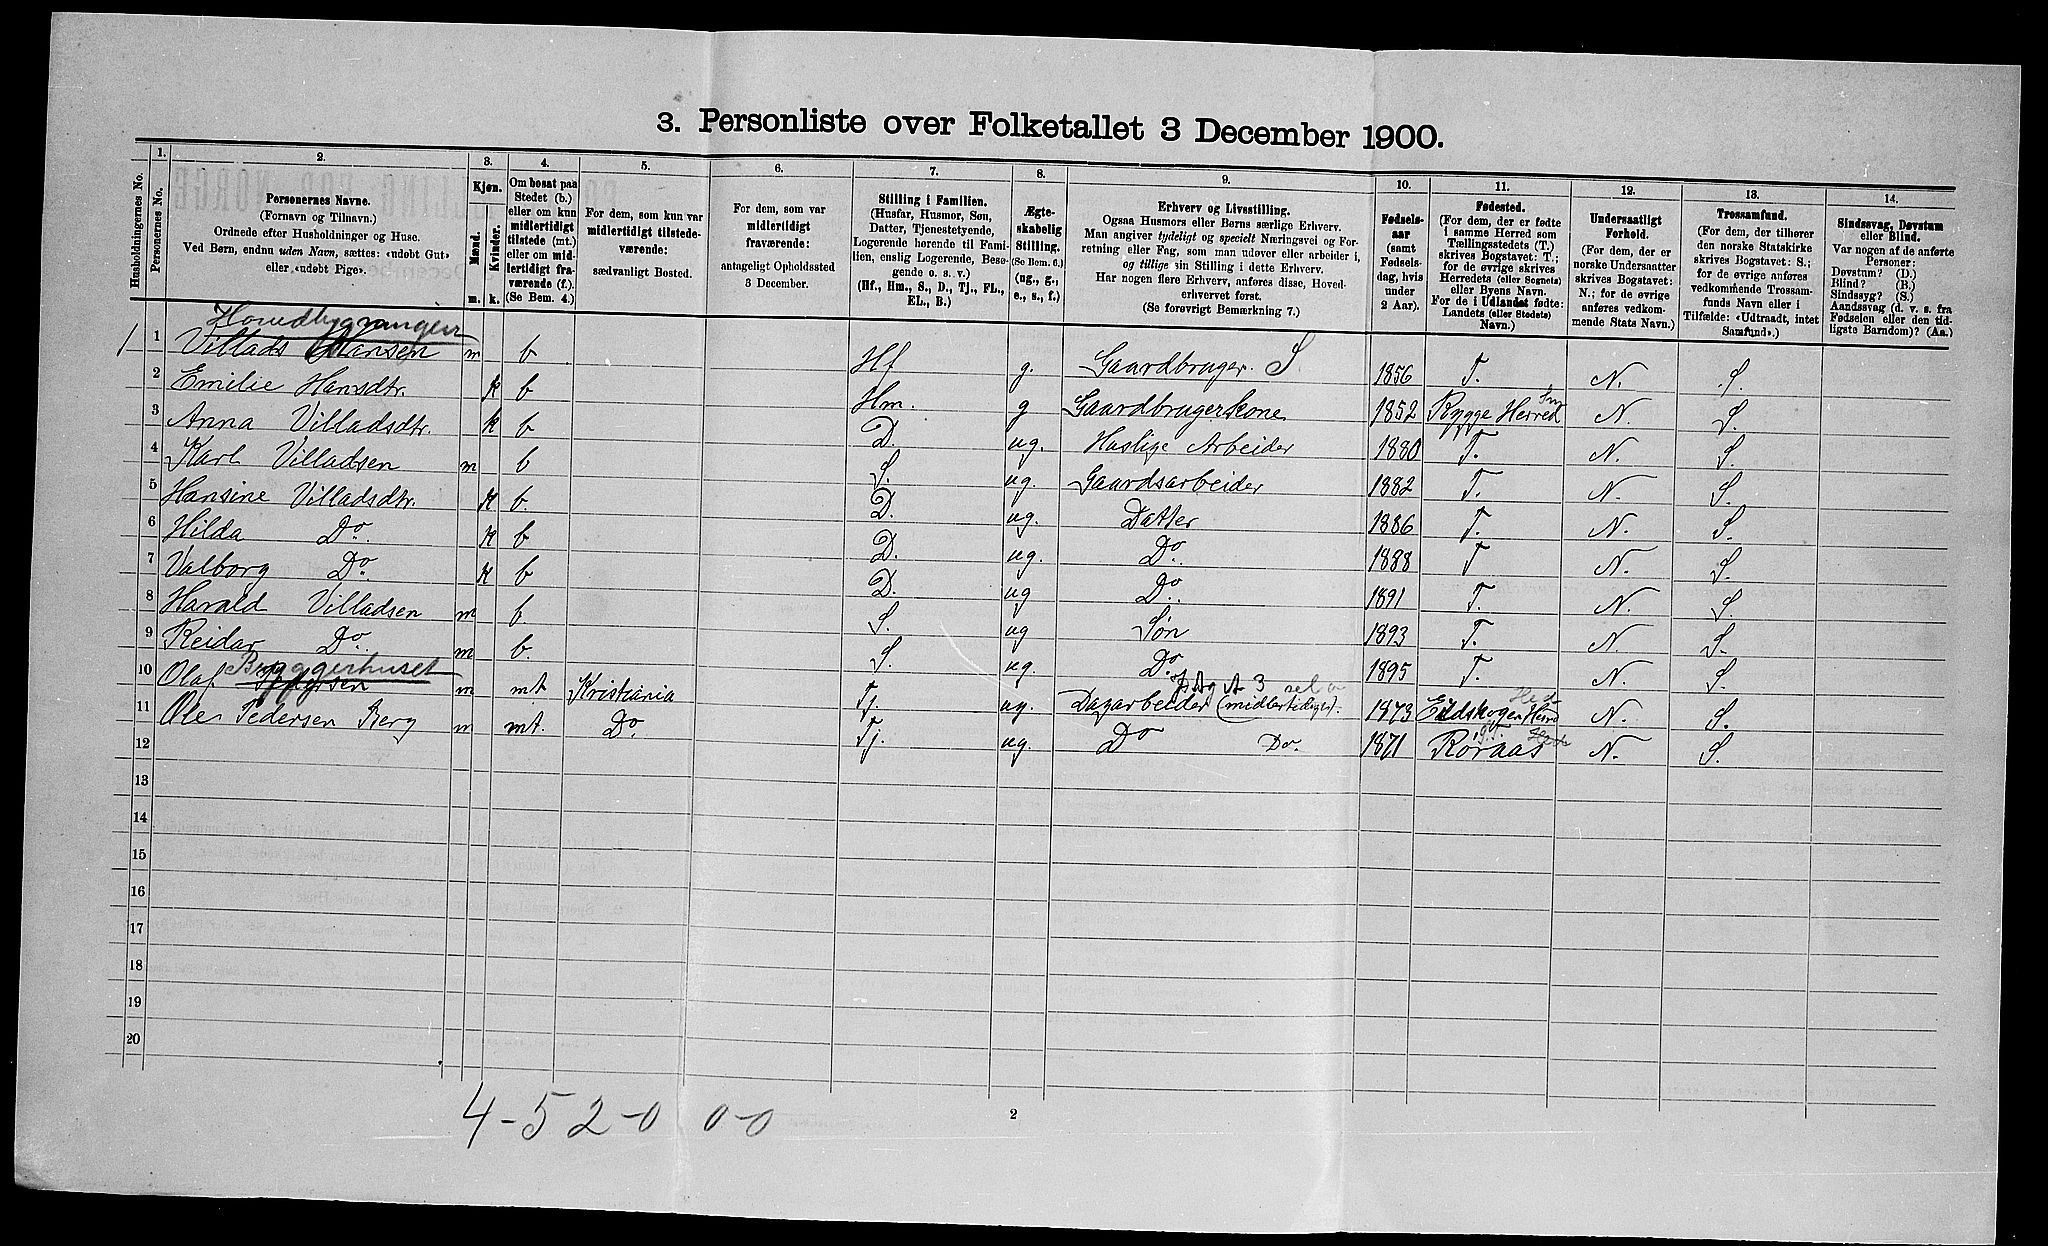 3. Personliste over Folketallet 3 December 1900.
Husholdningernes No.
1. Personernes No.
2. Personernes Navne. (Fornavn og Tilnavn.) Ordnede efter Husholdninger og Huse. Ved Børn, endnu uden Navn, sættes: «udøbt Gut» eller «udøbt Pige».
3. Kjøn. Mænd. Kvinder. m. k.
4. Om bosat paa Stedet (b.) eller om kun midlertidigt tilstede (mt.) eller om midlertidigt fraværende (f.) (Se Bem. 4.)
5. For dem, som kun var midlertidigt tilstedeværende: sædvanligt Bosted.
6. For dem, som var midlertidigt fraværende: antageligt Opholdssted 3 December.
7. Stilling i Familien. (Husfar, Husmor, Søn, Datter, Tjenestetyende, Logerende hørende til Familien, enslig Logerende, Besøgende o. s. v.) (Hf., Hm., S., D., Tj., FL., EL., B.)
8. Ægteskabelig Stilling. (Se Bem. 6.) (ug., g., e., s., f.)
9. Erhverv og Livsstilling. Ogsaa Husmors eller Børns særlige Erhverv. Man angiver tydeligt og specielt Næringsvei og Forretning eller Fag, som man udøver eller arbeider i, og tillige sin Stilling i dette Erhverv. Har nogen flere Erhverv, anføres disse, Hovederhvervet først. (Se forøvrigt Bemærkning 7.)
10. Fødselsaar (samt Fødselsdag, hvis under 2 Aar).
11. Fødested. (For dem, der er fødte i samme Herred som Tællingsstedets (T.) skrives Bogstavet: T.; for de øvrige skrives Herredets (eller Sognets) eller Byens Navn. For de i Udlandet fødte: Landets (eller Stedets) Navn.)
12. Undersaatligt Forhold. (For dem, der er norske Undersaatter skrives Bogstavet: N.; for de øvrige anføres vedkommende Stats Navn.)
13. Trossamfund. (For dem, der tilhører den norske Statskirke skrives Bogstavet: S.; for de øvrige anføres vedkommende Trossamfunds Navn eller i Tilfælde: «Udtraadt, intet Samfund».)
14. Sindssvag, Døvstum eller Blind. Var nogen af de anførte Personer: Døvstum? (D.) Blind? (B.) Sindssyg? (S.) Aandssvag (d. v. s. fra Fødselen eller den tidligste Barndom)? (Aa.)
Hovedbygningen
1 1 Villads Hansen m b Hf g. Gaardbruger. S 1856 T. N. S.
2 Emilie Hansdtr. k b Hm. g Gaardbrugerkone 1852 Rygge Herred N. S.
3 Anna Villadsdtr. k b D. ug. Huslige Arbeider 1880 T. N. S.
4 Karl Villadsen m b S. ug. Gaardsarbeider 1882 T. N. S.
5 Hansine Villadsdtr. k b. D. ug. Datter 1886 T. N. S.
6 Hilda Do. k b D. ug. Do 1888 T N. S.
7 Valborg Do. k b D. ug Do. 1891 T. N. S
8 Harald Villadsen m b S. ug Søn 1893 T. N. S.
9 Reidar Do. m b. S. ug. Do. 1895 T. N. S.
Bryggerhuset
10 Olaf m mt Kristiania Tj. ug. Dagarbeider (midlertidigt). 1873 Eidskogen Herred N. S.
11 Ole Pedersen Berg m mt. Do. Tj. ug. Do Do. 1871 Roraas N. S.
12
13
14
15
16
17
18
19
20
4-52-0 0-0
2